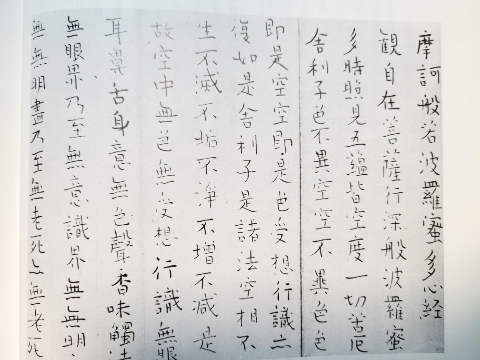 摩訶般若波羅蜜多心経
観自在菩薩行深般波羅蜜
多時照見五蘊皆空度一切苦厄
舎利子色不異空空不異色色
即是空空即是色受想行識亦
復如是舎利子是諸法空相不
生不滅不垢不淨不增不減是
故空中無色無受想行識無眼
耳鼻舌身意無色聲香味觸法
無眼界乃至無意識界無無明
無無明盡乃至無老死亦無老死